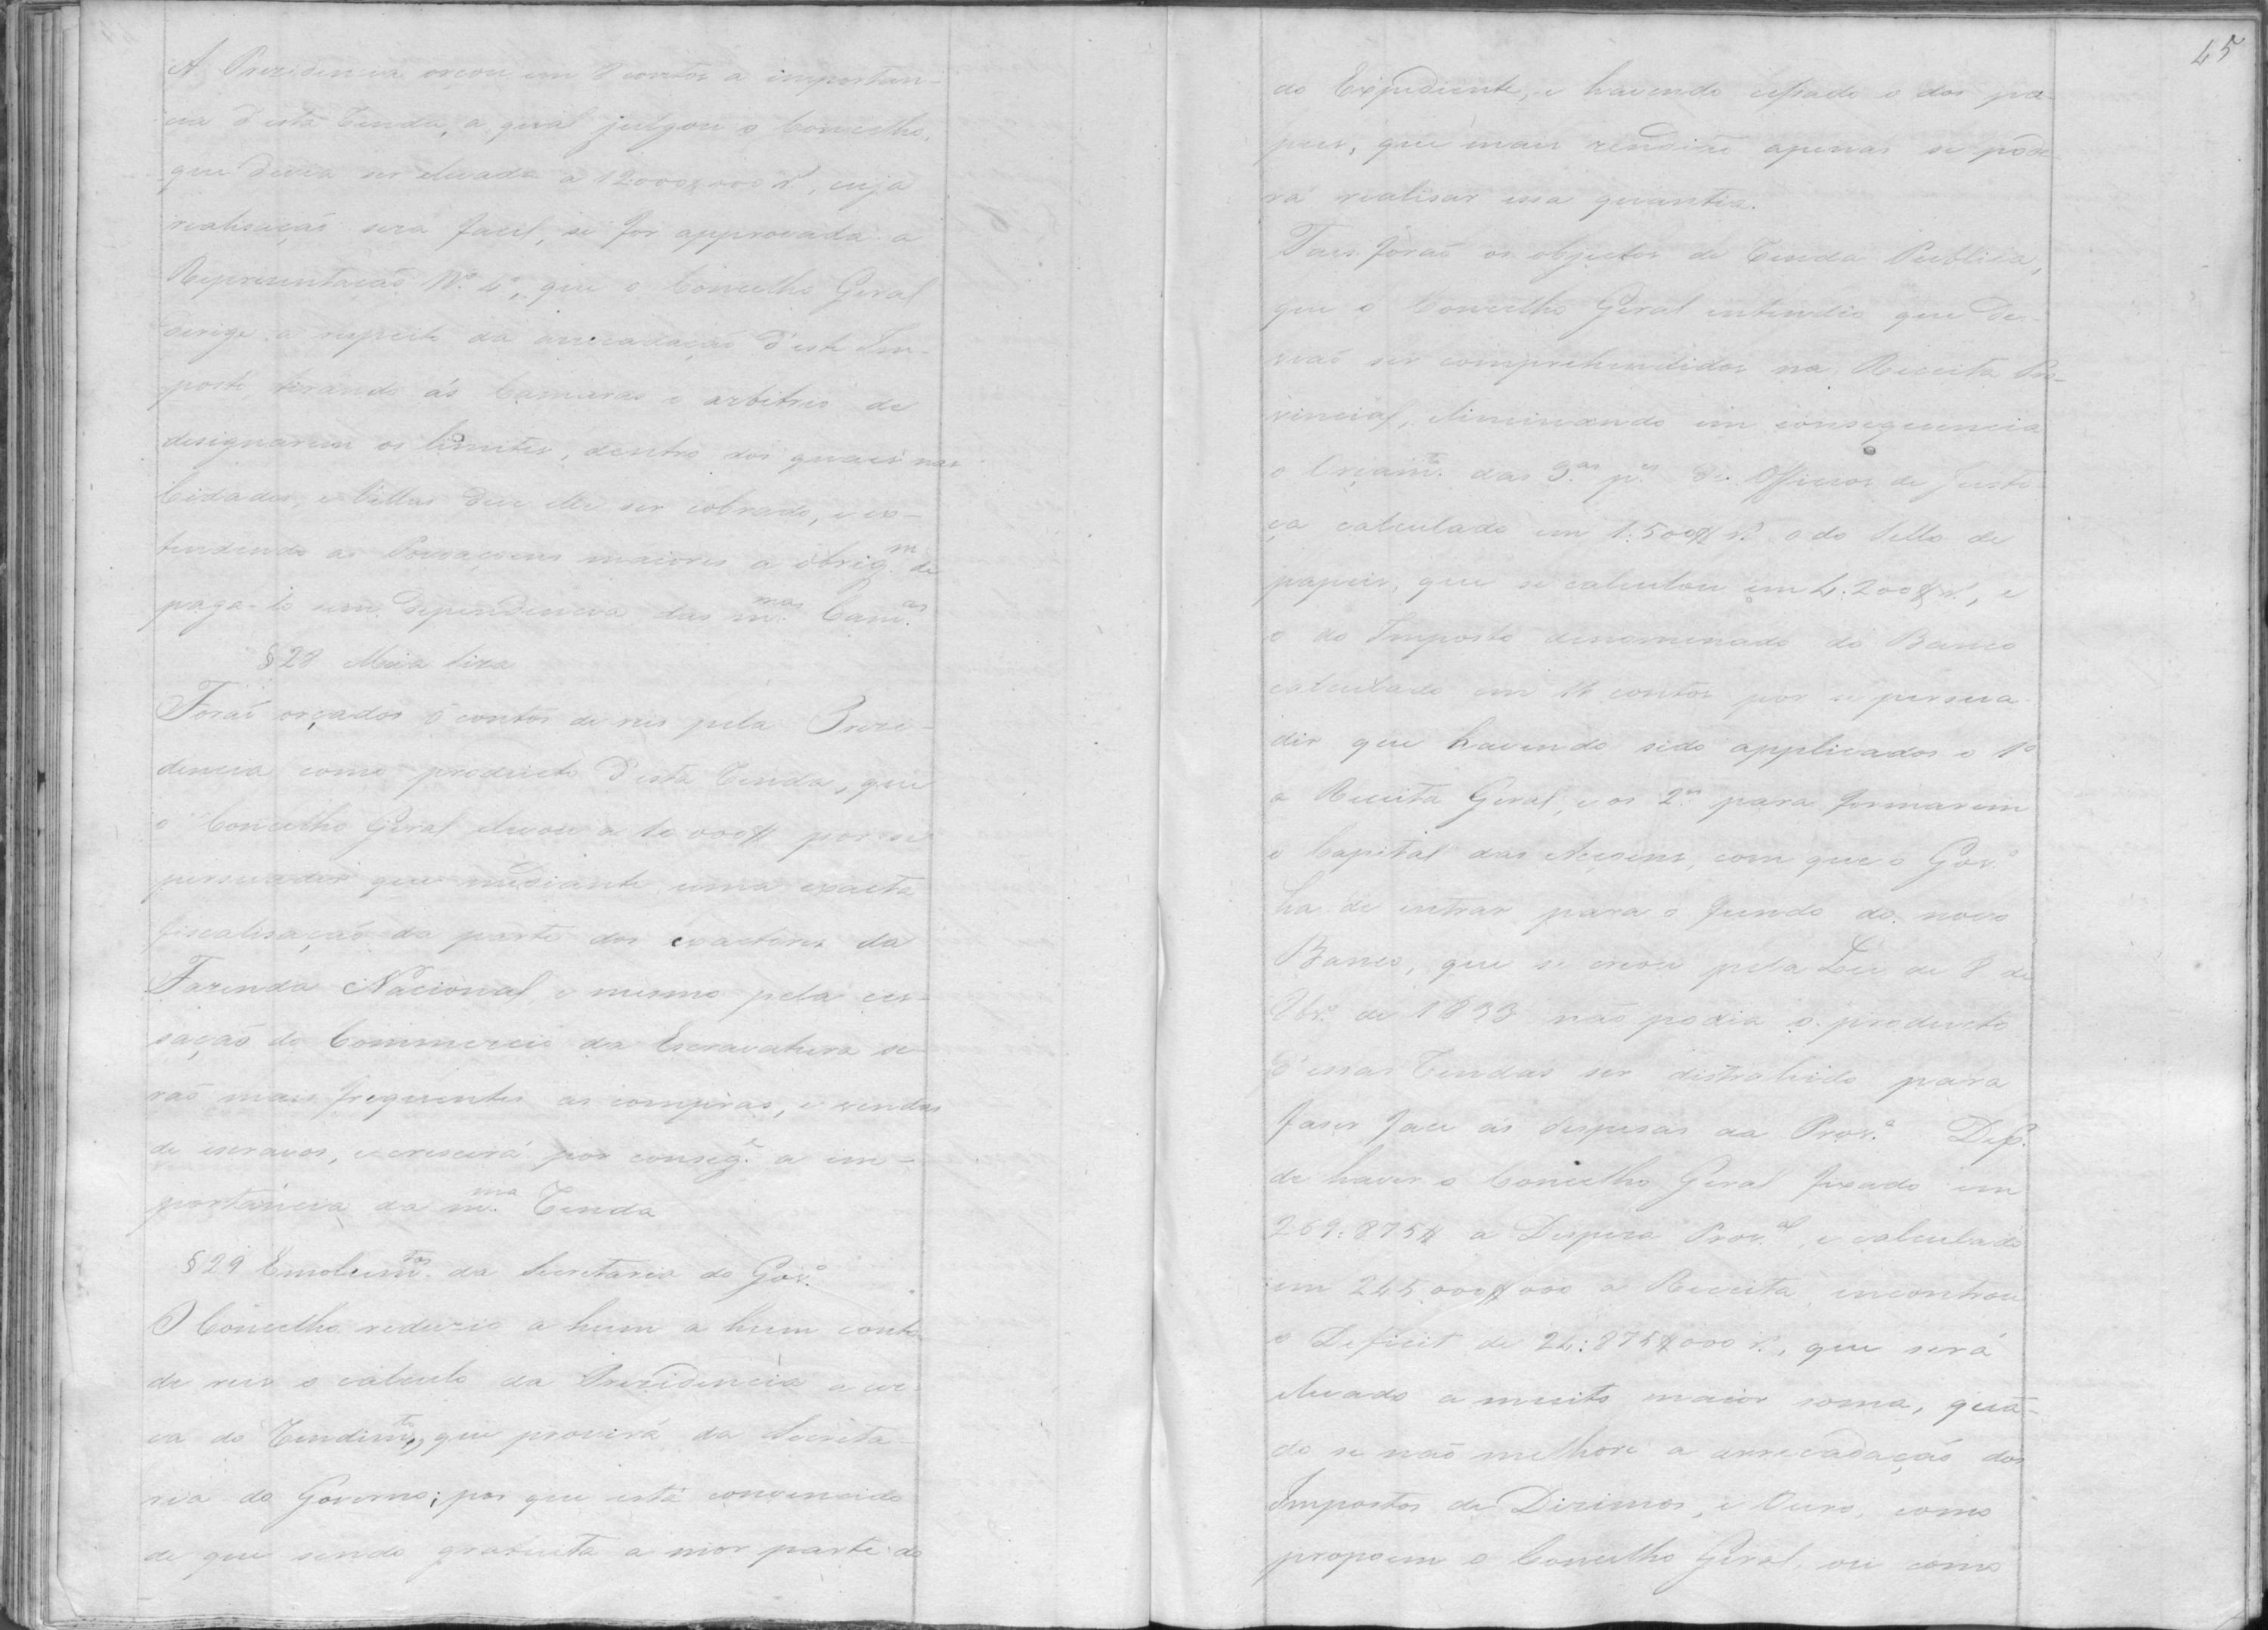 A Prezidencia orçou em 8 contos a importan-
cia d'esta Renda, a qual julgou o Concelho,
que devia ser elevada a 12000$000 rs, cuja
realisação será facil, se for approvada a
Representação Nº. 4º, que o Concelho Geral
derige a respeito da arrecadação d'este Im-
posto, tirando ás Camaras o arbitrio de
designarem os limites, dentro dos quaes nas
Cidades, e Villas deve elle ser cobrado, e ex-
tendendo as Povoaçoens maiores a obrig.m de
paga-lo sem dependencia das m.mas Cam.as
§ 28 Meia Siza
Foraõ orçados 5 contos de reis pela Prezi-
dencia como producto d'esta Renda, que
o Concelho Geral elevou a 10 000$ por se
persuadir que mediante uma exacta
fiscalisação da parte dos exactores da
Fazenda Nacional, e mesmo pela ces-
sação do Commercio da Escravatura se-
rão mais frequentes as compras, e vendas
de escravos, e crescerá por conseg.e a im-
portancia da m.ma Renda
§ 29 Emolum.tos da Secretaria do Gov.º
O Concelho reduzio a hum a hum conto
de reis o calculo da Prezidencia a cer
ca do Rendim.to, que provirá da Secreta-
ria do Governo; por que está convencido
de que sendo gratuita a mor parte do
45
do Expediente, e havendo cessado o dos pa-
peis, que mais rendião apenas se pode-
rá realisar essa quantia.
Taes foraõ os objectos de Renda Publica,
que o Concelho Geral entendeo que de-
viaõ ser comprehendidos na Receita Pro-
vincial, eliminando em consequencia
o Orçam.to das 3.as p.es de Officios de Justi-
ça calculado em 1:500$ rs. o do Sello de
papeis, que se calculou em 4:200$ rs., e
o do Imposto denominado do Banco
calculado em 14 contos por se persua-
dir que havendo sido applicados o 1º
a Receita Geral, e os 2.os para formarem
o Capital das Acçoens, com que o Gov.º
ha de entrar para o fundo do novo
Banco, que se creou pela Lei de 8 de
8br.º de 1833 não podia o producto
d'essas Rendas ser distrahido para
faser face ás despesas da Prov.ª Dep.s
de haver o Concelho Geral fixado em
269:875$ a Despeza Prov.al, e calculado
em 245,000$000 a Receita, encontrou
o Deficit de 24:875$000 rs., que será
elevado a muito maior soma, quã-
do se naõ melhore a arrecadação dos
Impostos de Dizimos, e Ouro, como
propoem o Concelho Geral, ou como